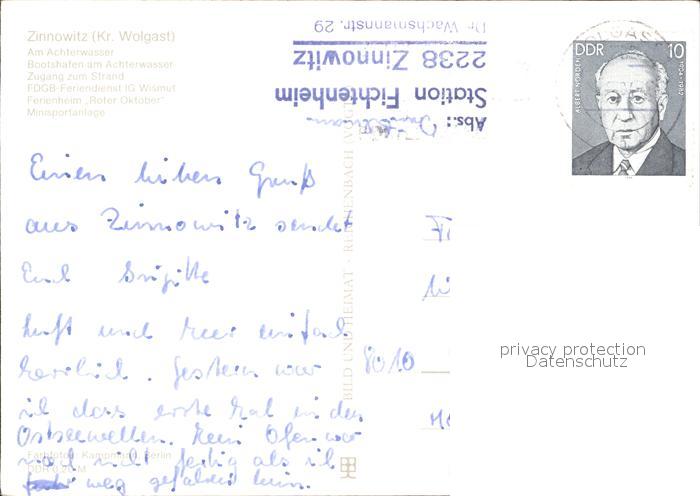 Zinnowitz (Kr. Wolgast)
Am Achterwasser
Bootshafen am Achterwasser
Zugang zum Strand
FDGB-Feriendienst IG Wismut
Ferienheim „Roter Oktober"
Minisportanlage
Abs.:
Station Fichtenheim
2238 Zinnowitz
Dr. Wachsmannstr. 29
WOLGAST
DDR 10
ALBERT NORDEN 1904-1982
Einen lieben Gruß
aus Zinnowitz sendet
Euch Brigitte
Luft und Meer einfach
herrlich. Gestern war
ich das erste Mal in den
Ostseewellen. Mein Ofen war
noch nicht fertig als ich
weg gefahren bin.
8010
BILD UND HEIMAT · REICHENBACH (VOGTL)
Farbfoto: Kampmann, Berlin
DDR 0,20 M
privacy protection
Datenschutz